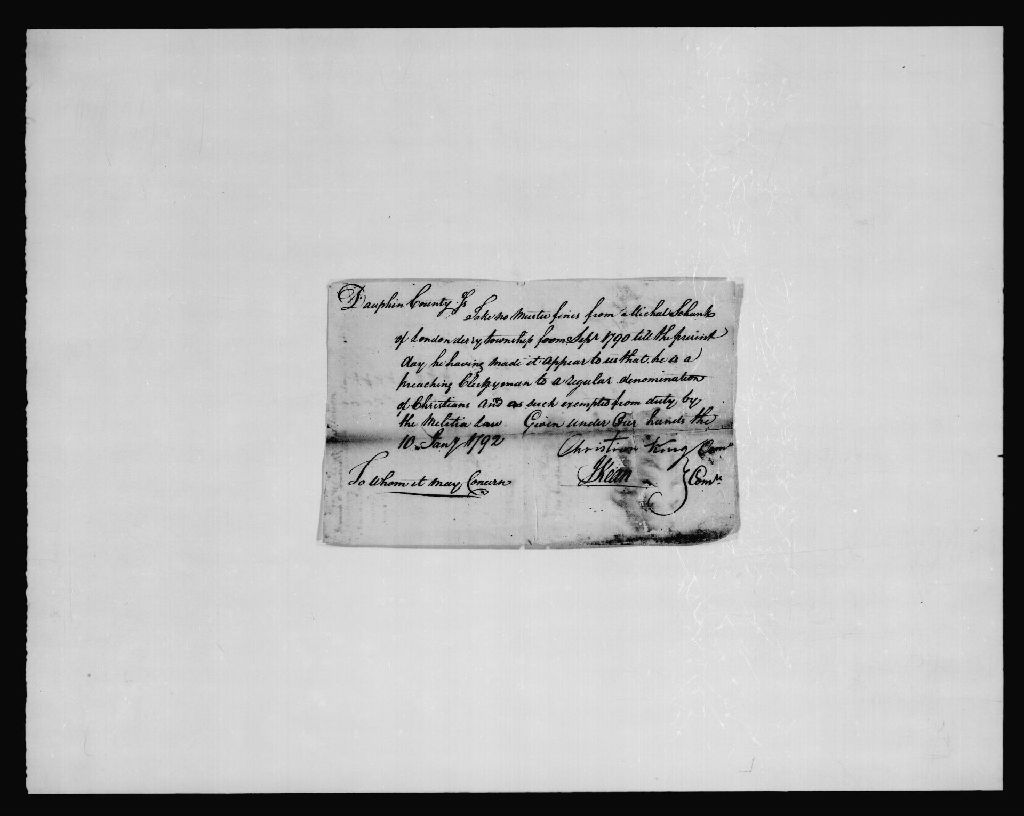 Dauphin County Ss
Take no Muster fines from Michael Schank
of London derry township from Sepr 1790 till the present
day, he having made it appear to us that he is a
preaching Clergyman to a regular denomination
of Christians and as such exempted from duty by
the Melitia Law Given under Our hands the
10 Jany 1792 Christian King
J Kean Comrs
To whom it may Concern